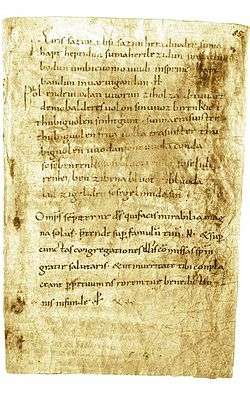 Eiris sazun idisi sazun hera duoder suma
hapt heptidun sumaherilezidun suma clu
bodun umbicuoniouuidi insprinc hapt
bandun inuar uigandun. H.
Phol endeuuodan uuorun ziholza du uuart
demobalderes uolon sinuuoz birenkict
thubiguolen sinhtgunt. sunnaerasuister
thubiguolen friia uolla erasuister thu
biguolen uuodan sohe uuolaconda
sosebenrenki sosebluotrenki soselidi
renki ben zibena bluot zibluoda
lid zigeliden sosegelimidasin.
Omps sempiterne ds qui facis mirabilia mag
na solus. prtende sup famulu tuu. N. & sup
cunctas congregationes illis commissas spm
gratie salutaris. & ut in ueritate tibi compla
ceant perpetuum eis rorem tue benedictio
nis infunde. P